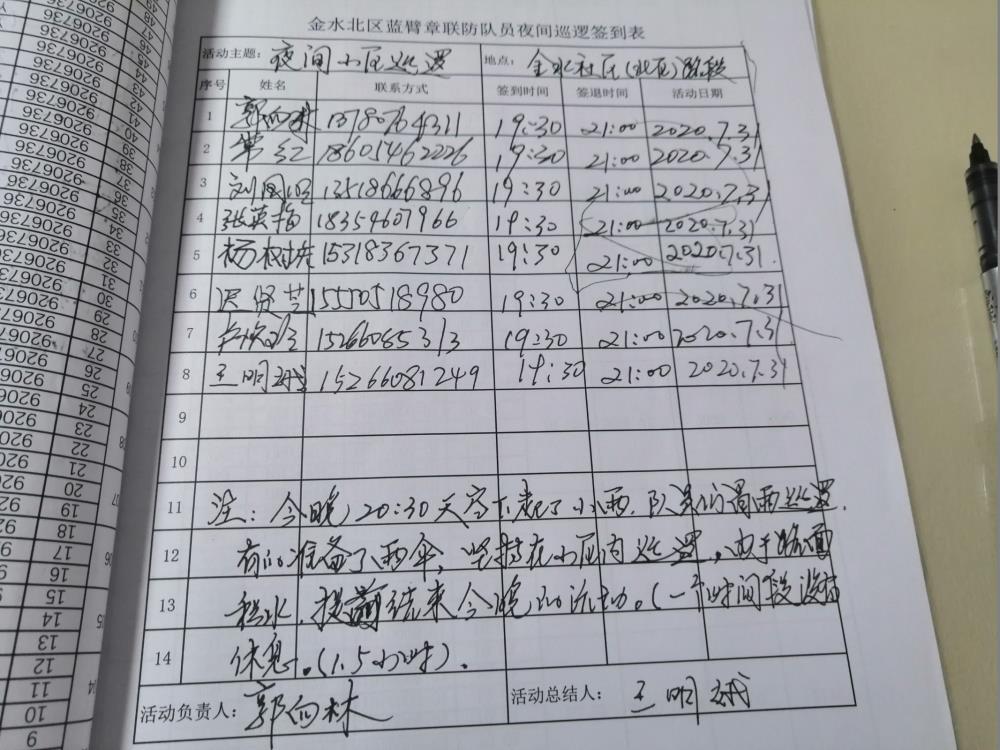 金水北区蓝臂章联防队员夜间巡逻签到表
活动主题：夜间小区巡逻 地点：金水社区(北区)路段
序号 姓名 联系方式 签到时间 签退时间 活动日期
1 郭向林 13780764311 19:30 21:00 2020.7.31
2 常红 18605462226 19:30 21:00 2020.7.31
3 刘国 13518666896 19:30 21:00 2020.7.31
4 张英梅 18359607966 19:30 21:00 2020.7.31
5 杨树 15318367371 19:30 21:00 2020.7.31
6 贤芝 15550518980 19:30 21:00 2020.7.31
7 15266085313 19:30 21:00 2020.7.31
8 王明娥 15266081249 19:30 21:00 2020.7.31
9
10
11 注：今晚20:30天空下起了小雨，队员们冒雨巡逻，
12 有的准备了雨伞，坚持在小区内巡逻，由于路面
13 积水，提前结束今晚的活动。(一个时间段没有
14 休息。(1.5小时)。
活动负责人：郭向林 活动总结人：王明娥